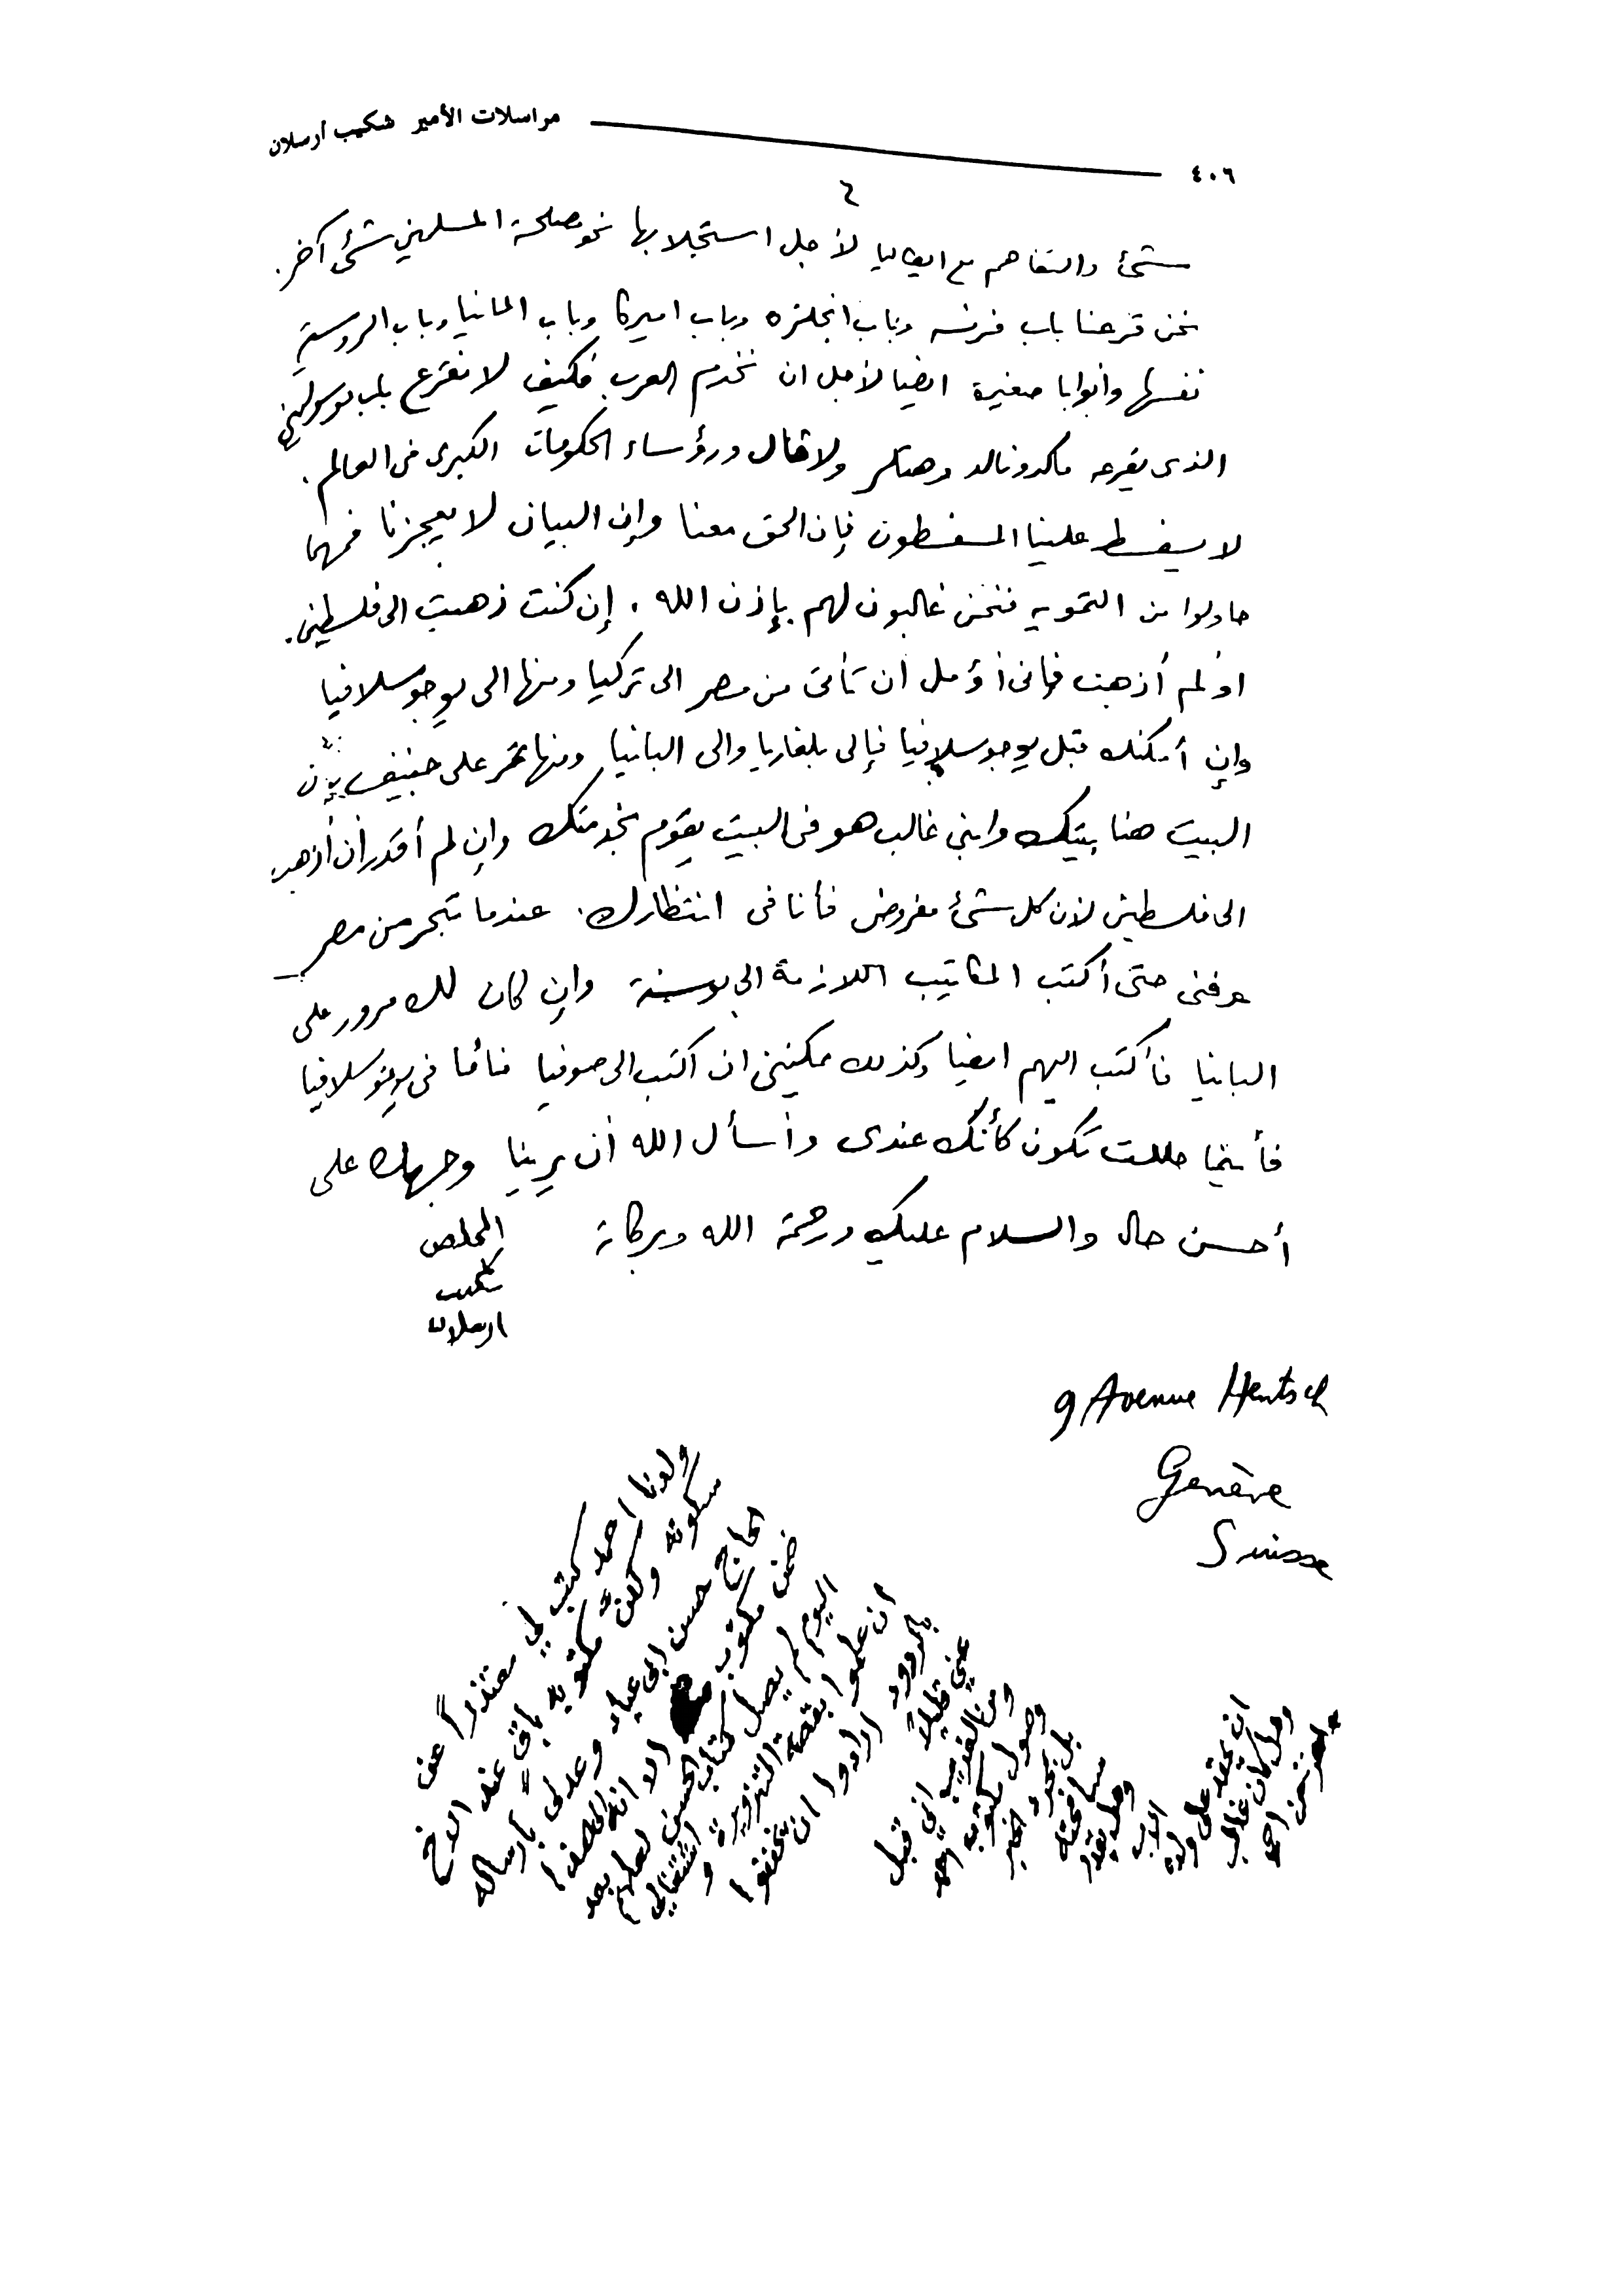 ٤٠٦ مراسلات الأمير شكيب أرسلان
٤
شئ والتفاهم مع ايطاليا لأجل استجلابها نحو مصلحة المسلمين شئ آخر.
نحن قرعنا باب فرنسه وباب انجلتره وباب اميركا وباب المانيا وباب الروسية
نفسها وأبوابا صغيرة ايضا لأجل ان نخدم العرب فكيف لا نقرع باب موسوليني
الذى يقرعه ماكدونالد وهتلر ولافال ورؤساء الحكومات الكبرى فى العالم.
لا يسفسط علينا المسفسطون فإن الحق معنا وإن البيان لا يعجزنا فمهما
حاولوا من التمويه فنحن غالبون لهم بإذن الله. إن كنت ذهبت الى فلسطين.
او لم أذهب فإنى أؤمل أن تأتى من مصر الى تركيا ومنها الى يوجوسلافيا
وإن أمكنك قبل يوجوسلافيا فإلى بلغاريا والى البانيا ومنها تمر على جنيف فإن
البيت هنا بيتك وابني غالب هو فى البيت يقوم بخدمتك وإن لم أقدر أن أذهب
الى فلسطين لأن كل شئ مفروض فأنا فى انتظارك. عندما تبحر من مصر
عرفنى حتى أكتب المكاتيب اللازمة الى بوسنة وإن كان لك مرور على
البانيا فأكتب اليهم ايضا وكذلك يمكننى ان اكتب الى صوفيا فأما فى يوغوسلافيا
فأينما حللت تكون كأنك عندى وأسأل الله أن يرينا وجهك على
أحسن حال والسلام عليك ورحمة الله وبركاته
المخلص
شكيب
ارسلان
9 Avenue Hentsch
Genève
Suisse
ولدنا احمد كتب لي معتذراً عن
سكوته ولكن مكتوبه باق عند الاخ
الحاج حسن ابى عياد وعدنى بارساله
ضمن مكتوب الا انه
اليوم لم يصل كتاب الحسن لعلهم بعد
ان علموا بقصة التزويرة و
بالردود ارادوا ان يخففوا
عني قليلاً
ومن الغريب انى قبل
وصول مكتوب احمد
بل بمجرد الخبر
سامحته
وهل يقدر
الاب
ان يحقد على ولده
وهل كان غالب
اعز من احمد